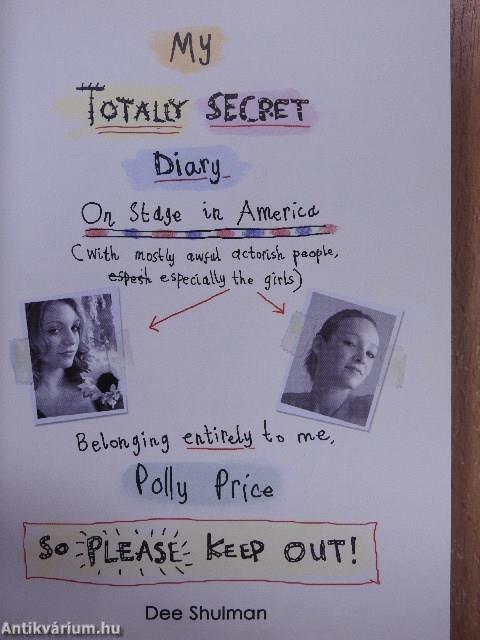 My
TOTALLY SECRET
Diary
On Stage in America
(with mostly awful actorish people,
espesh especially the girls)
Belonging entirely to me,
Polly Price
So PLEASE KEEP OUT!
Dee Shulman
Antikvárium.hu